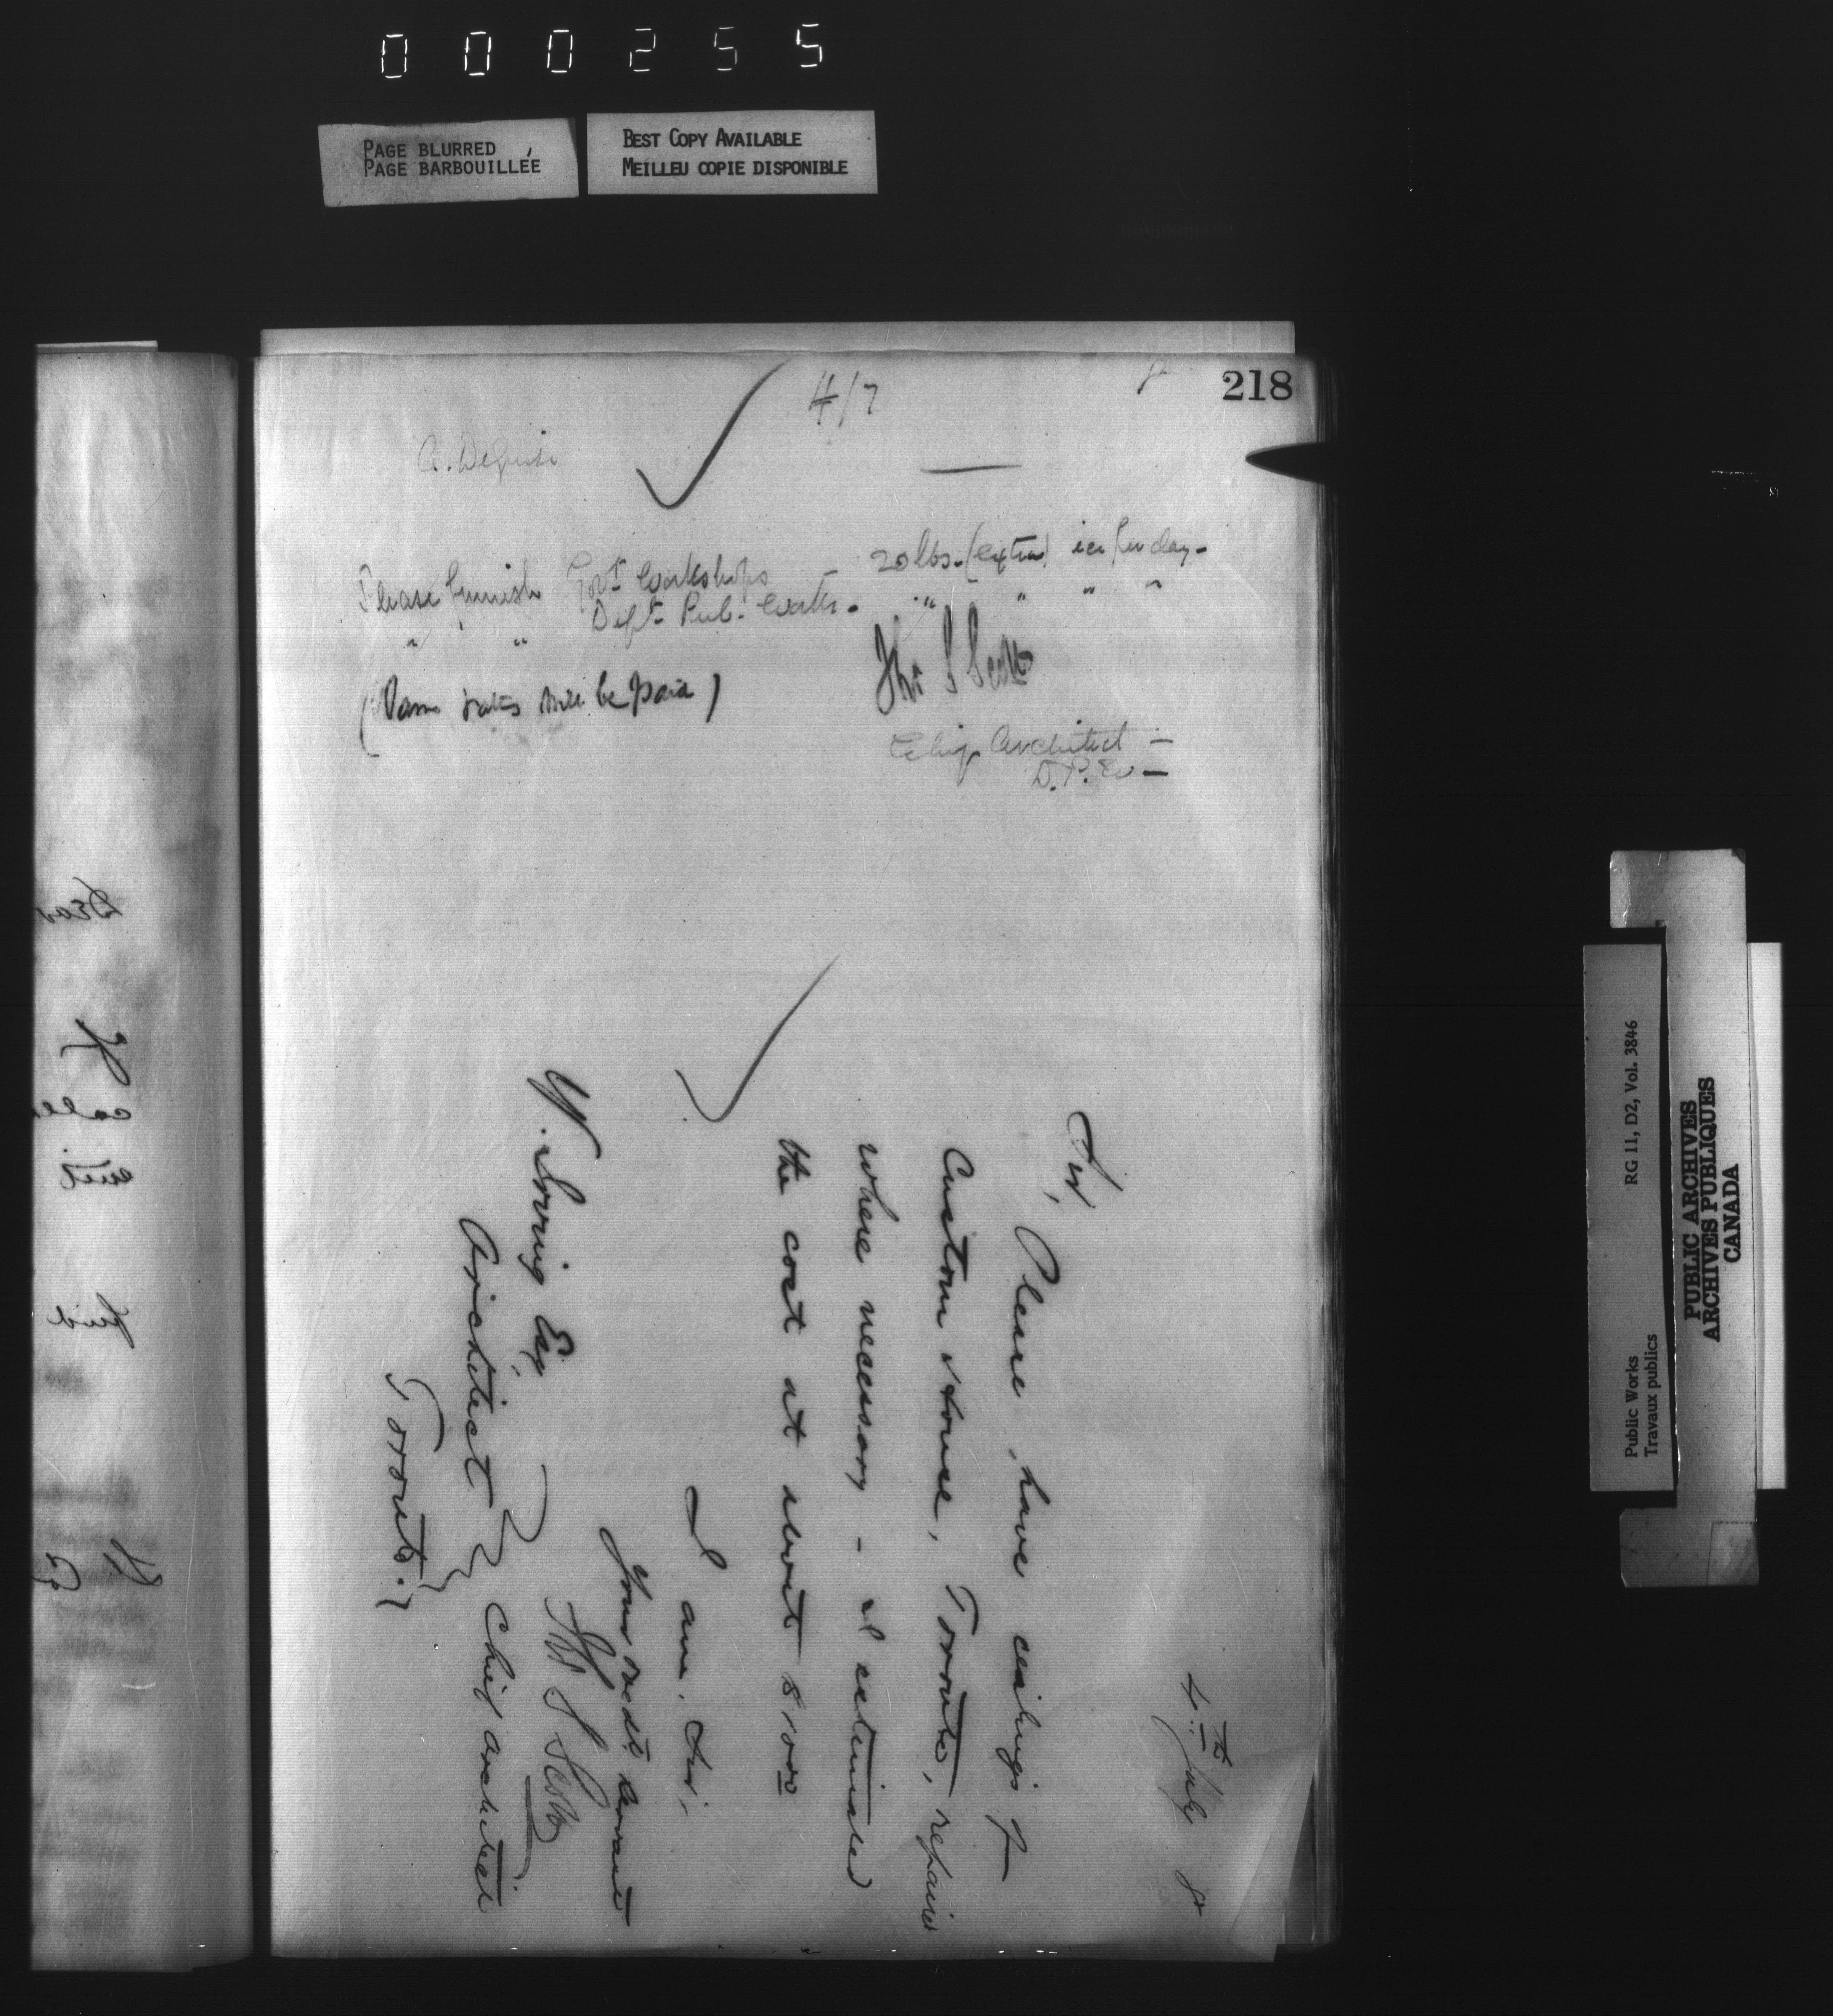 000255
PAGE BLURRED
PAGE BARBOUILLÉE
BEST COPY AVAILABLE
MEILLEU COPIE DISPONIBLE
218
4/7
Please furnish Govt Workshops – 20 lbs. (extra) ice per day –
" " Dept. Pub. Works. " " " "
(Same rates will be paid)
Thos S Scott
Chief Architect –
D.P.W –
4th July
Sir,
Please have ceilings of
Custom House, Toronto, repaired
where necessary – I estimated
the cost at about $
I am, Sir,
Your obdt servant
Thos S Scott
Chief Architect
W. Irving Esq.
Architect
Toronto.
RG 11, D2, Vol. 3846
Public Works
Travaux publics
PUBLIC ARCHIVES
ARCHIVES PUBLIQUES
CANADA